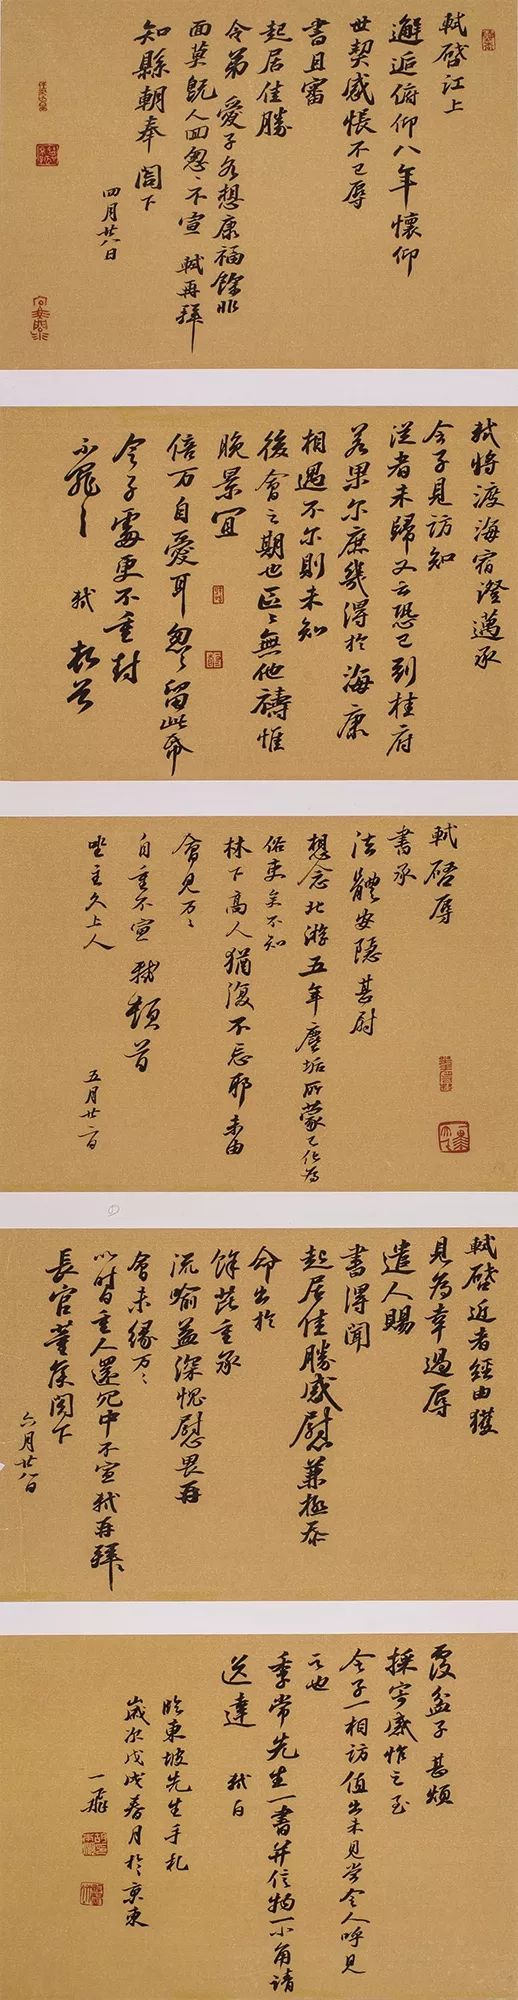 軾啓江上
邂逅俯仰八年懷仰
世契感悵不已辱
書且審
起居佳勝
令弟愛子各想康福餘非
面莫既人回怱〻不宣軾再拜
知縣朝奉閤下
四月廿八日
軾將渡海宿澄邁承
令子見訪知
從者未歸又云恐已到桂府
若果尔庶幾得於海康
相遇不尔則未知
後會之期也區〻無他禱惟
晚景宜
倍万自愛耳怱〻留此帋
令子處更不重封
不罪〻軾頓首
軾啓辱
書承
法體安隱甚尉
想念北游五年塵垢所蒙已化為
俗吏矣不知
林下高人猶復不忘耶未由
會見万〻
自重不宣軾頓首
坐主久上人
五月廿二日
軾啓近者經由獲
見為幸過辱
遣人賜
書得聞
起居佳勝感慰兼極忝
命出於
餘芘重承
流喻益深愧慰畏再
會未緣万〻
以時自重人還冗中不宣軾再拜
長官董侯閤下
六月廿八日
覆盆子甚煩
採寄感怍之至
令子一相訪值出未見當令人呼見
之也
季常先生一書并信物一小角請
送達軾白
臨東坡先生手札
歲次戊戌春月於京東
一飛